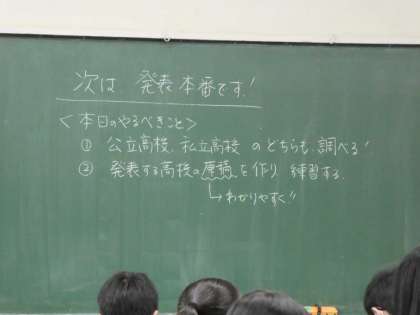 次は 発表本番です!
<本日のやるべきこと>
① 公立高校、私立高校 のどちらも、調べる!
② 発表する高校の原稿を作り 練習する.
↳わかりやすく!!